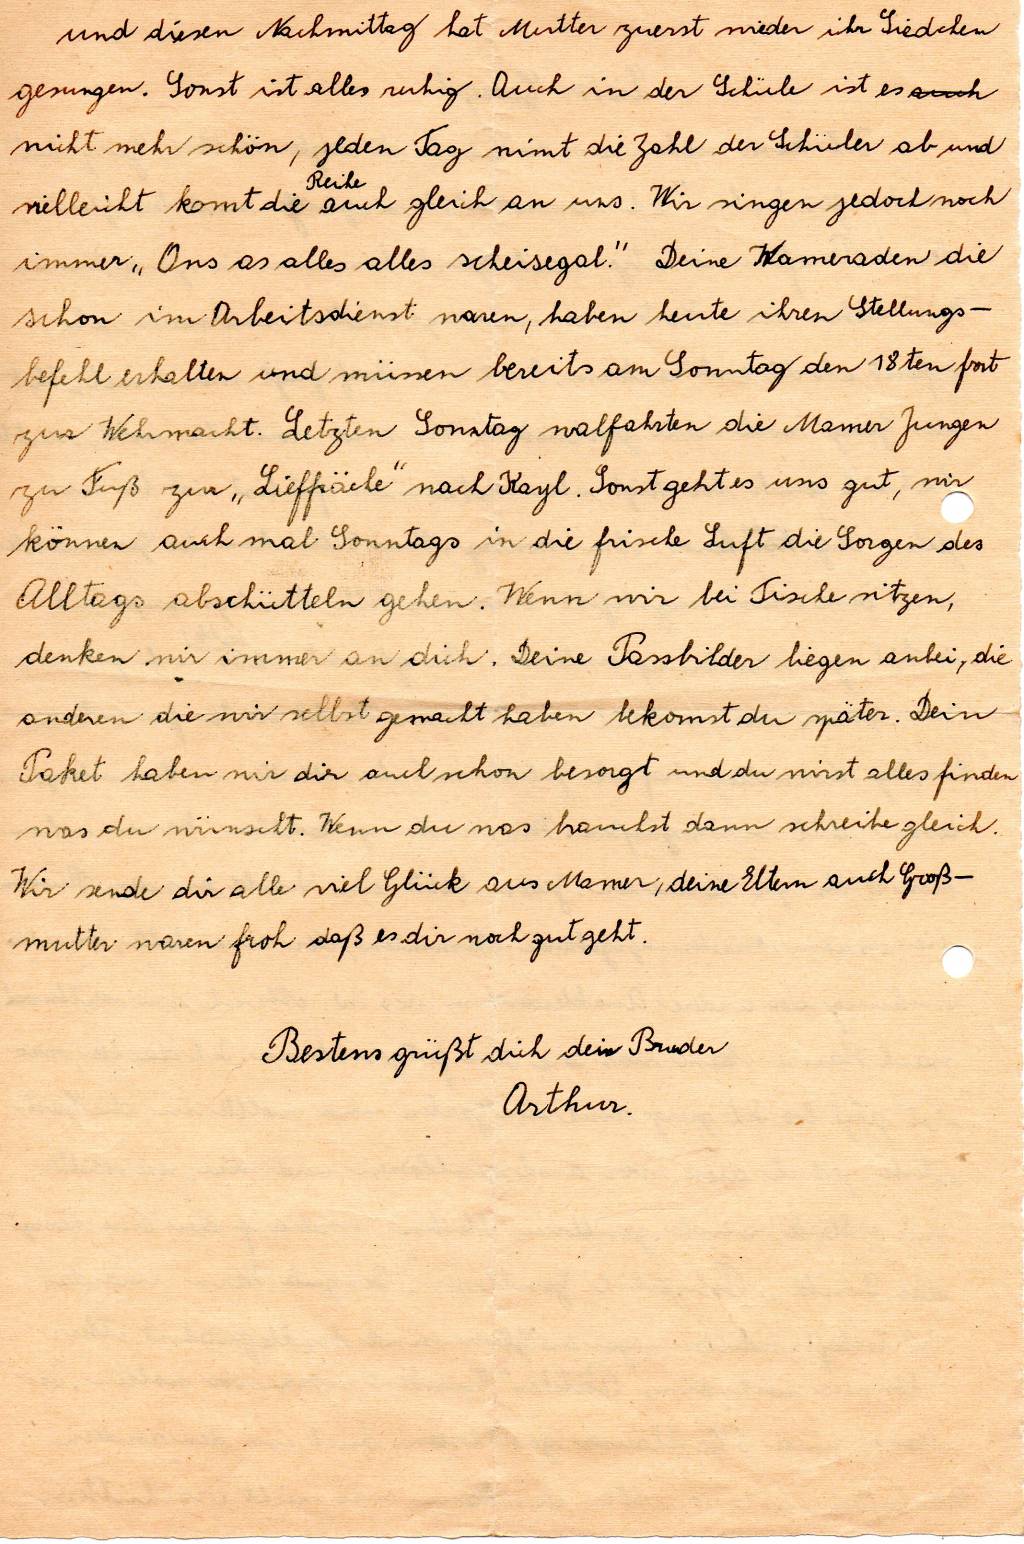 und diesen Nachmittag hat Mutter zuerst wieder ihr Liedchen
gesungen. Sonst ist alles ruhig. Auch in der Schule ist es auch
nicht mehr schön, jeden Tag nimt die Zahl der Schüler ab und
Reihe
vielleicht komt die auch gleich an uns. Wir singen jedoch noch
immer „Ons as alles alles scheisegal." Deine Kameraden die
schon im Arbeitsdienst waren, haben heute ihren Stellungs-
befehl erhalten und müssen bereits am Sonntag den 18ten fort
zur Wehrmacht. Letzten Sonntag walfahrten die Mamer Jungen
zu Fuß zur „Lieffräche" nach Kayl. Sonst geht es uns gut, wir
können auch mal Sonntags in die frische Luft die Sorgen des
Alltags abschütteln gehen. Wenn wir bei Tische sitzen,
denken wir immer an dich. Deine Passbilder liegen anbei, die
anderen die wir selbst gemacht haben bekomst du später. Dein
Paket haben wir dir auch schon besorgt und du wirst alles finden
was du wünscht. Wenn du was brauchst dann schreibe gleich.
Wir sende dir alle viel Glück aus Mamer, deine Eltern auch Groß-
mutter waren froh daß es dir noch gut geht.
Bestens grüßt dich dein Bruder
Arthur.